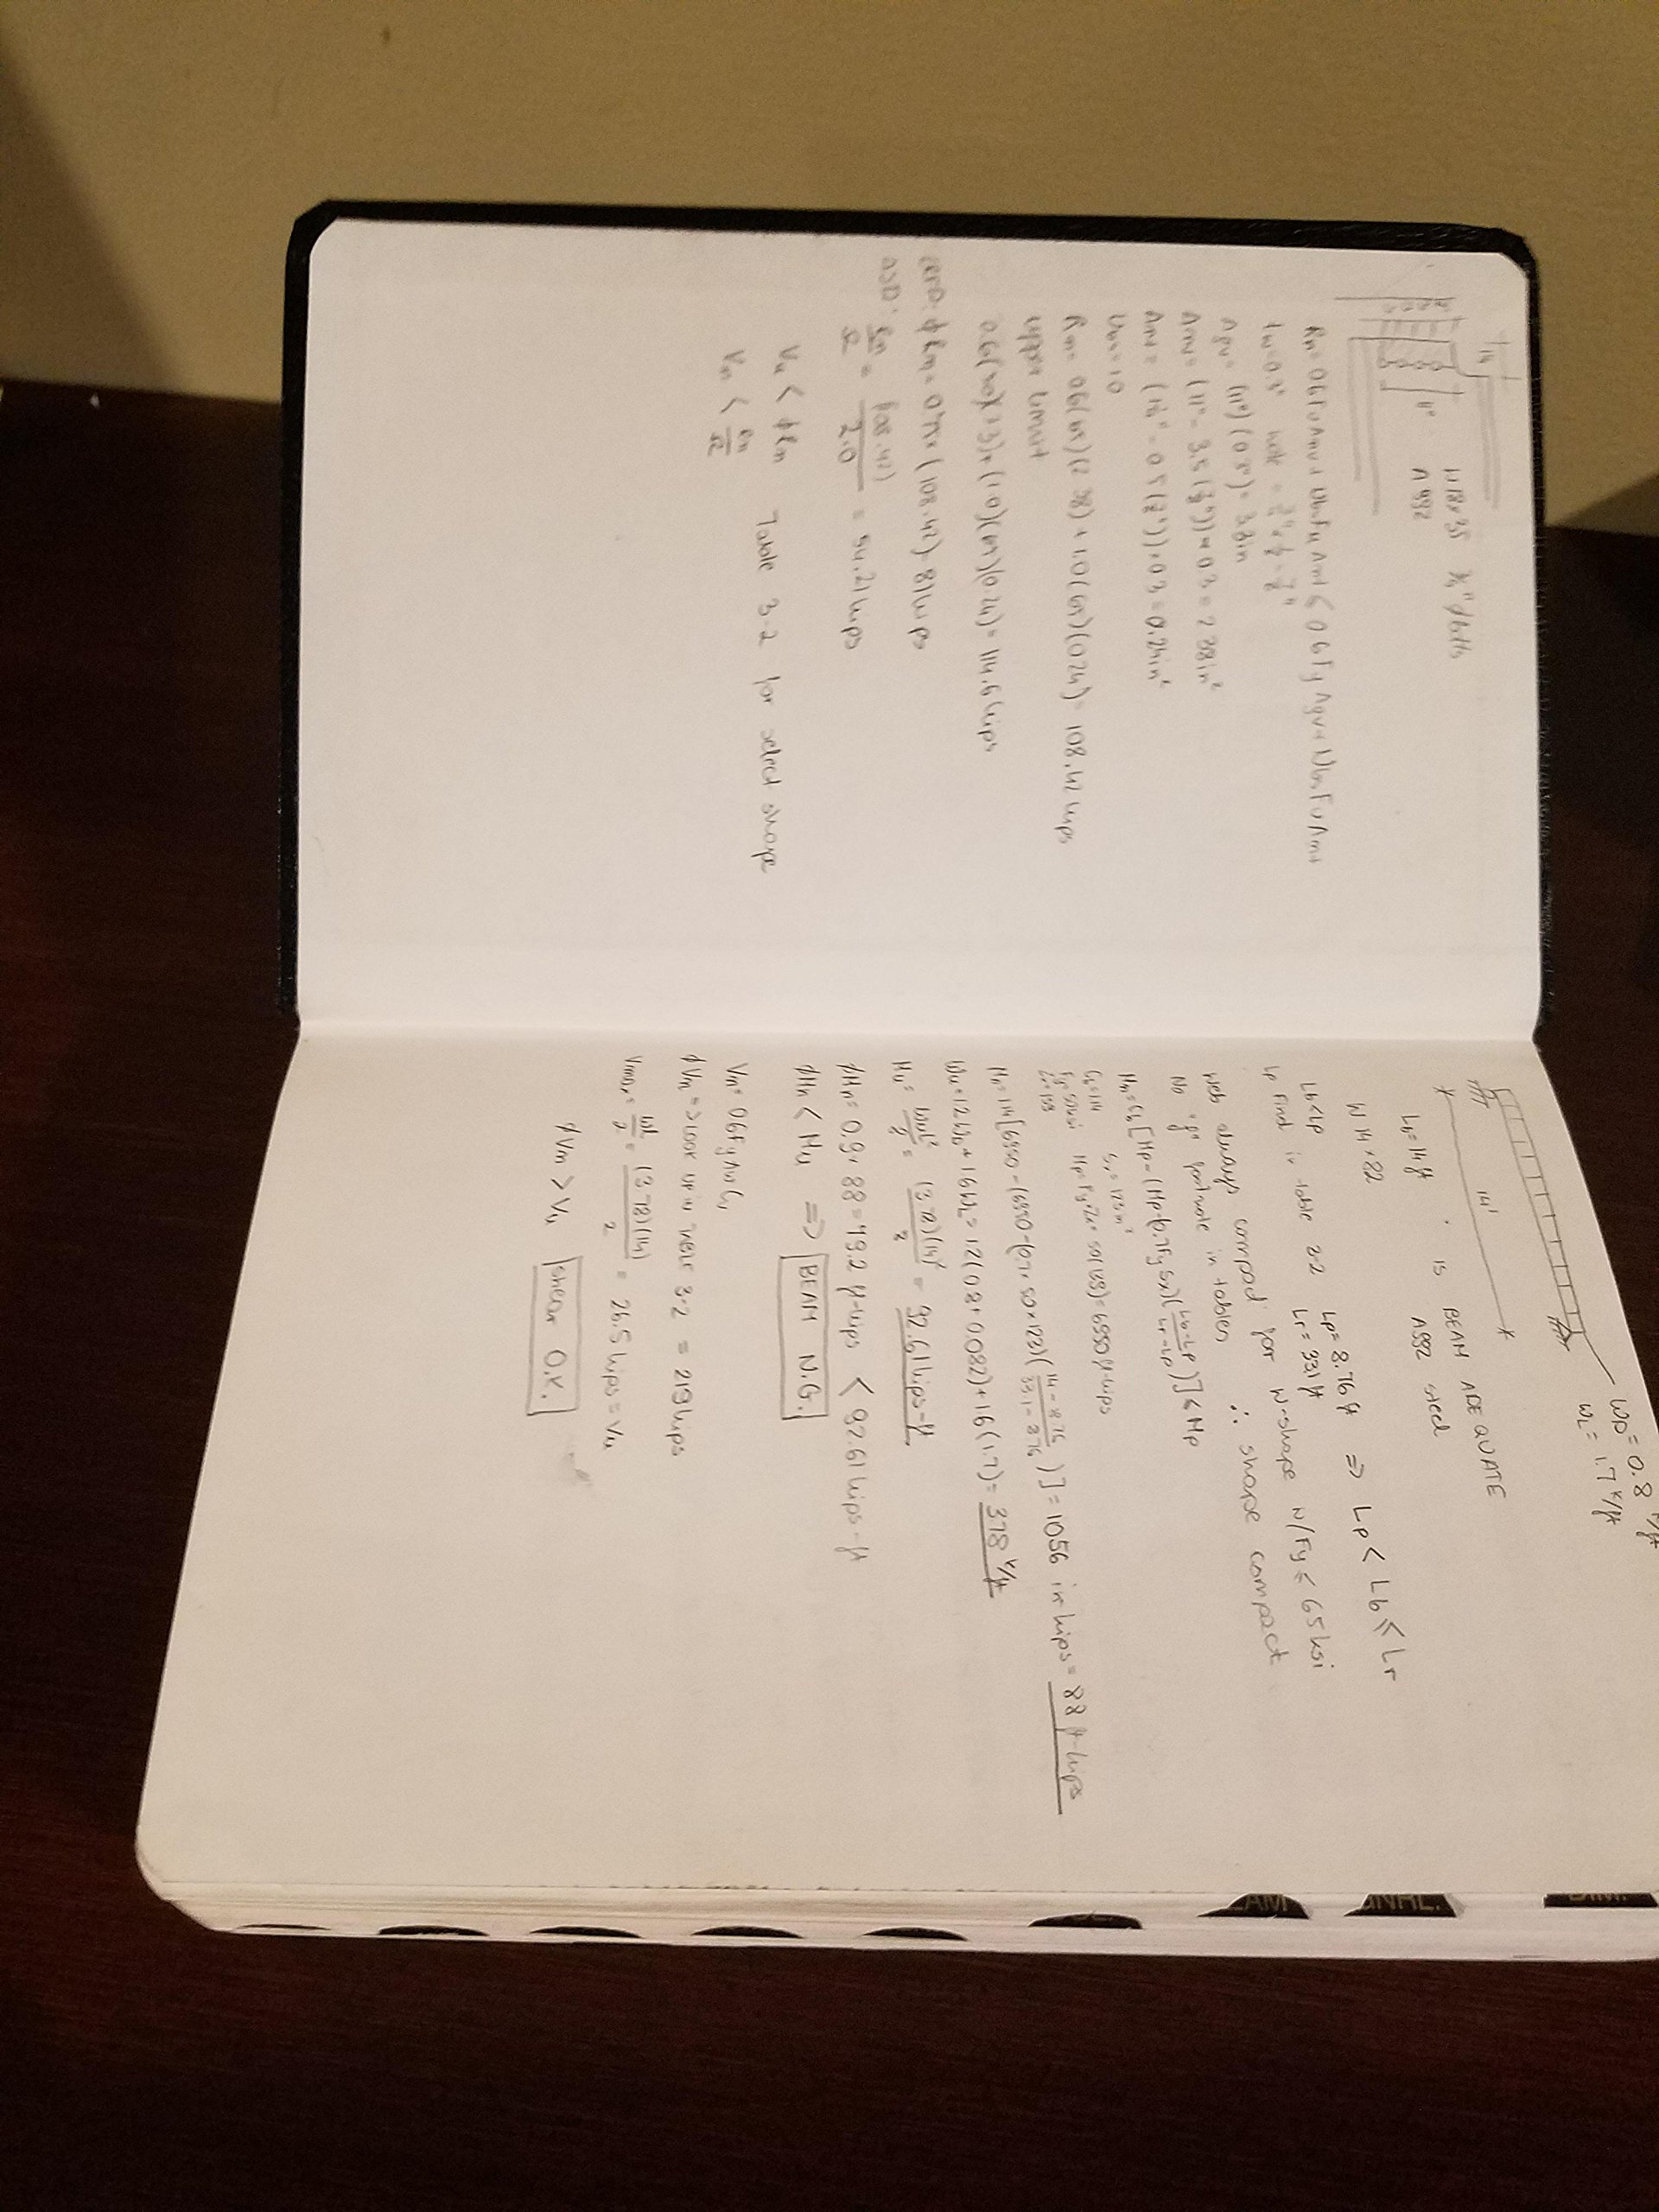 14
11"
W18x35 3/4" ϕ bolts
A992
Rn = 0.6 Fu Anv + Ubs Fu Ant ≤ 0.6 Fy Agv + Ubs Fu Ant
tw = 0.3"
Agv = (11")(0.3") = 3.3in
Anv = (11" - 3.5(7/8"))×0.3 = 2.38in²
Ubs = 1.0
Rn = 0.6(65)(2.38) + 1.0(65)(0.24) = 108.42 kips
upper limit
0.6(50)(3.3)+(1.0)(65)(0.24) = 114.6 kips
LRFD: ϕRn = 0.75×(108.42) = 81 kips
ASD: Rn/Ω = (108.42)/2.0 = 54.21 kips
Vu < ϕRn Table 3-2 for select shape
Vn < Rn/Ω
WD = 0.8 k/ft
WL = 1.7 k/ft
14'
IS BEAM ADEQUATE
Lb = 14 ft A992 steel
W14×82
Lb<Lp Lp = 8.76 ft => Lp < Lb ≤ Lr
Lp find in table 3-2 Lr = 33.1 ft
web always compact for W-shape w/Fy ≤ 65 ksi
No "f" footnote in tables ∴ shape compact
Mn = Cb[Mp-(Mp-0.7FySx)((Lb-Lp)/(Lr-Lp))] ≤ Mp
Cb = 1.14 Sx = 123 in³
Fy = 50 ksi Mp = Fy×Zx
Mn = 1.14[6950-(6950-(0.7×50×123)((14-8.76)/(33.1-8.76))] = 1056 in-kips = 88 ft-kips
Wu = 1.2WD + 1.6WL = 1.2(0.8+0.082)+1.6(1.7) = 3.78 k/ft
Mu = wuL²/8 = (3.78)(14)²/8 = 92.61 kips-ft
ϕMn = 0.9×88 = 79.2 ft-kips < 92.61 kips-ft
ϕMn < Mu => BEAM N.G.
Vn = 0.6FyAwCv
ϕVn => LOOK UP IN TABLE 3-2 = 219 kips
Vmax = wL/2 = (3.78)(14)/2 = 26.5 kips = Vu
ϕVn > Vu shear O.K.